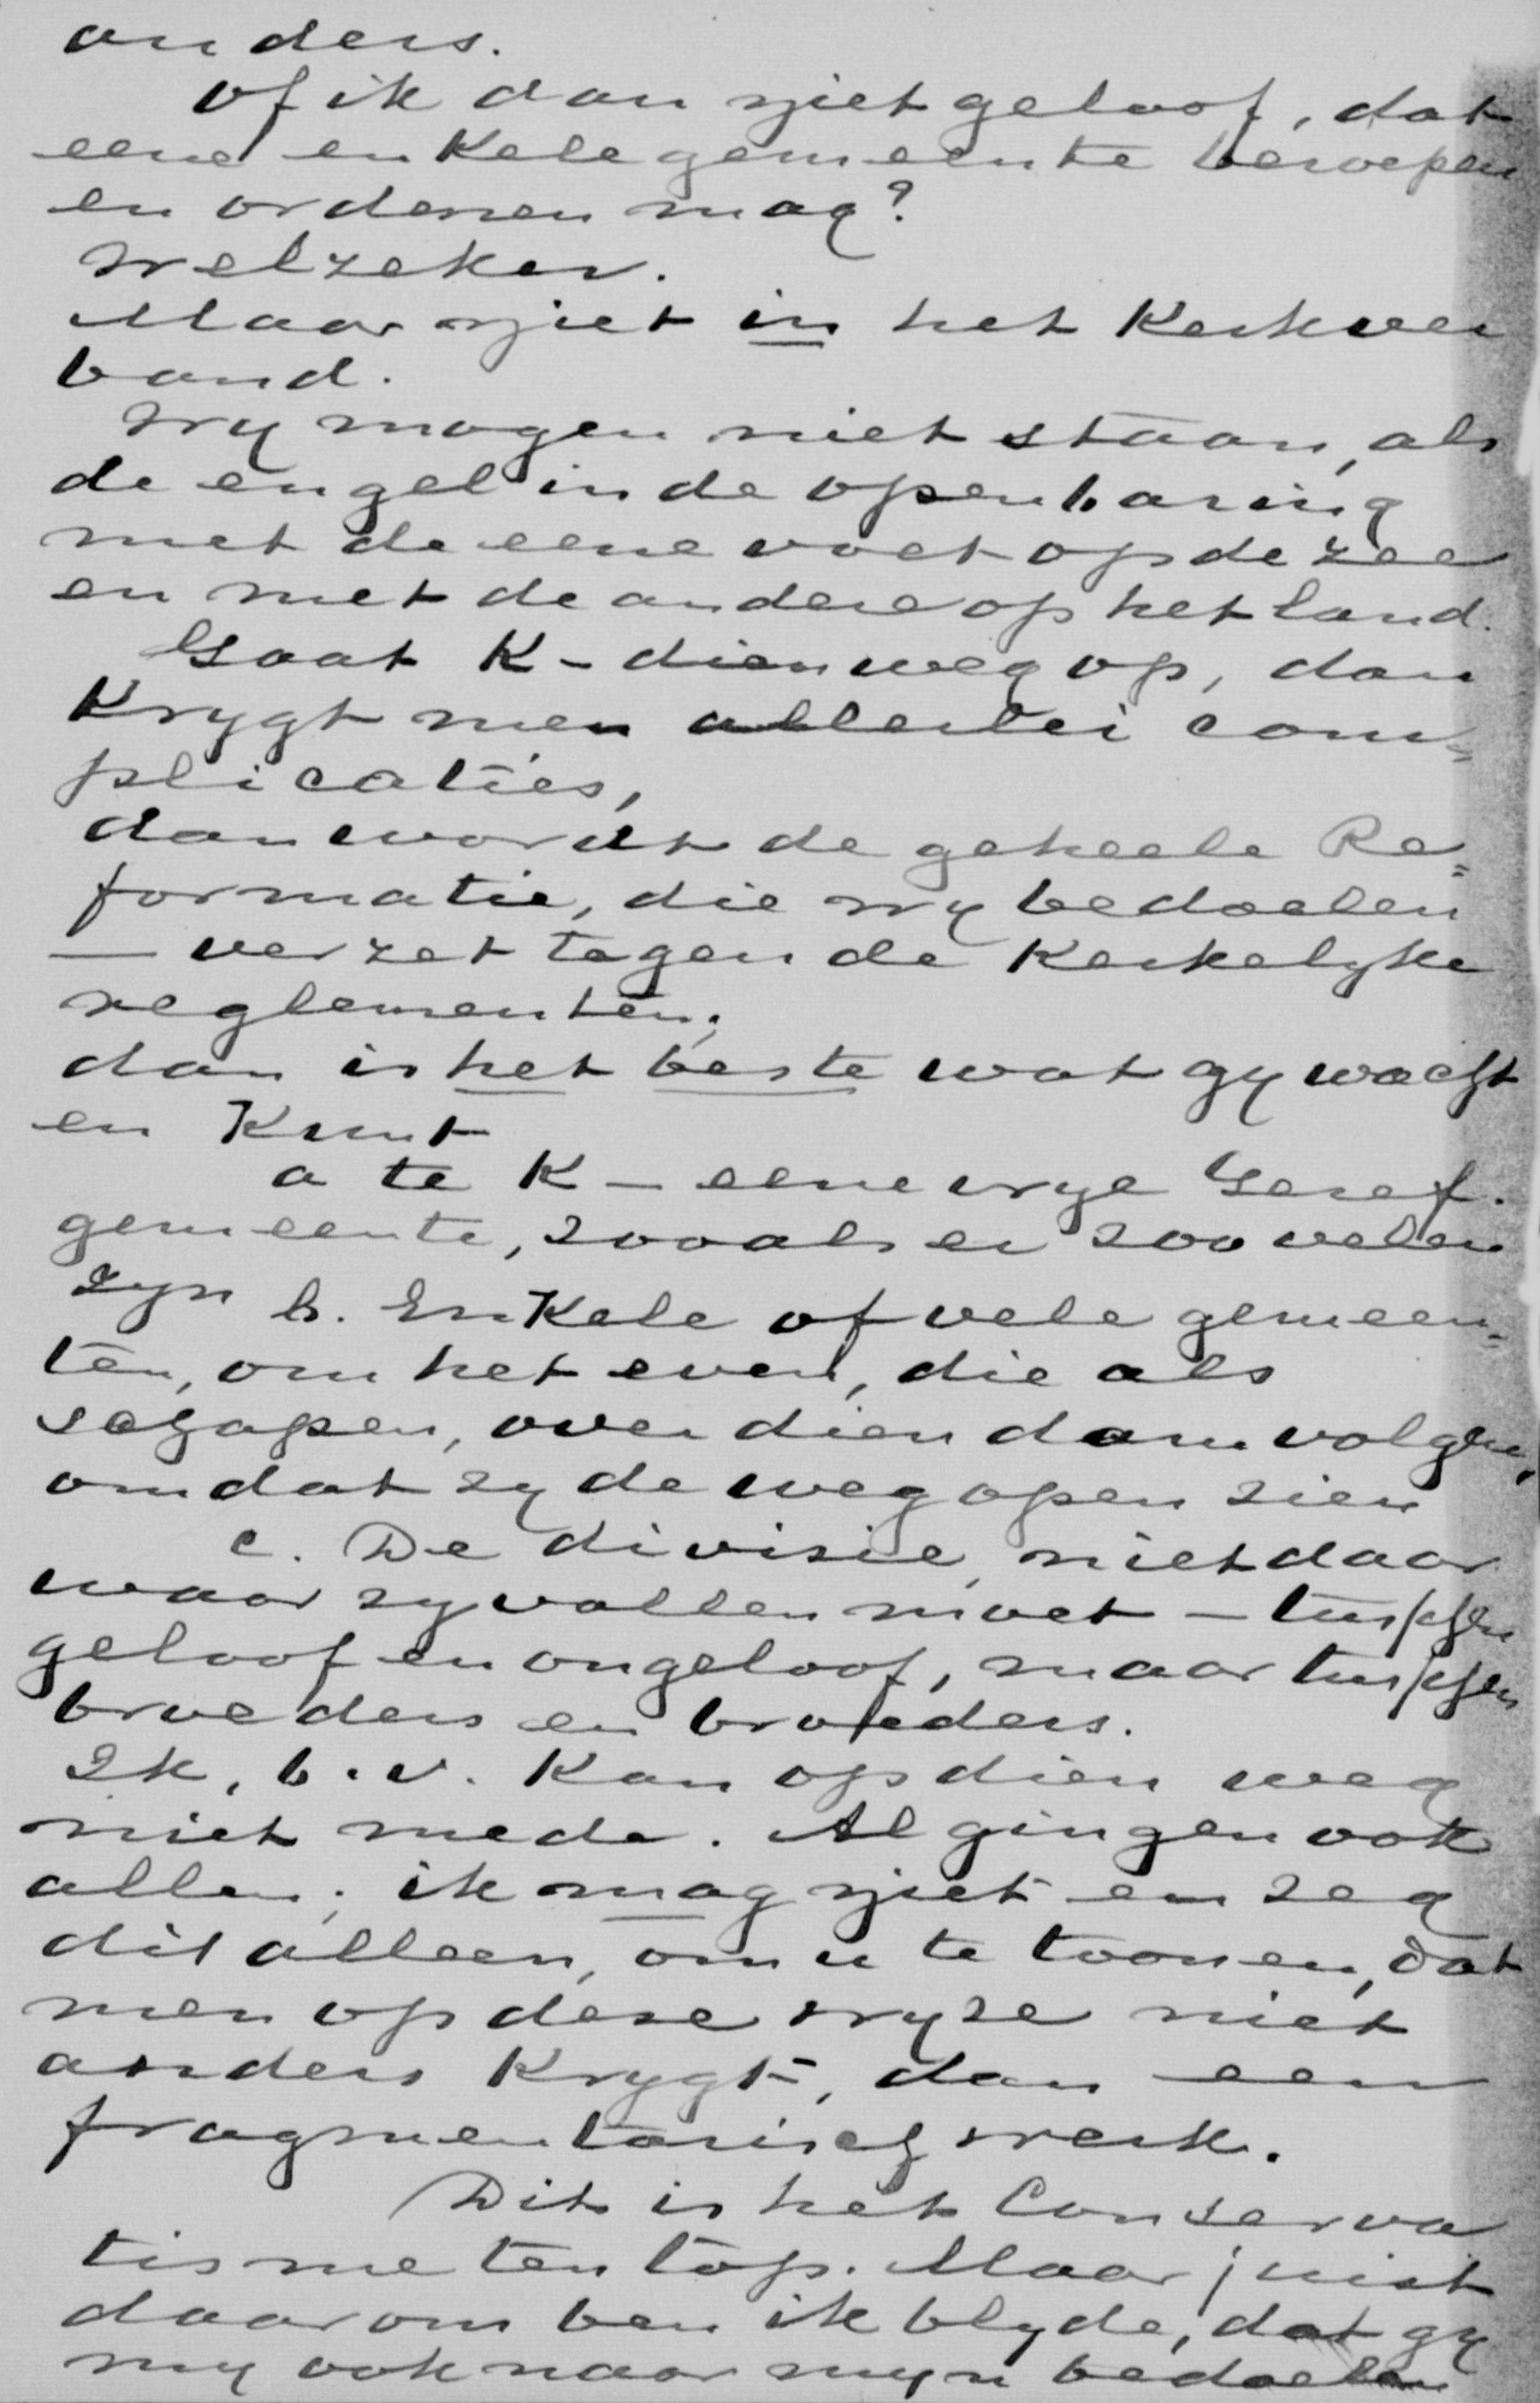 anders.
Of ik dan niet geloof, dat
eene enkele gemeente beroepen
en ordenen mag?
Welzeker.
Maar niet in het Kerkver
band.
Wy mogen niet staan, als
de engel in de openbaring
met de eene voet op de zee
en met de andere op het land.
Gaat K - dien weg op, dan
Krygt men allerlei com=
plicaties,
dan wordt de geheele Re=
formatie, die wy bedoelen
— verzet tegen de Kerkelyke
reglementen;
dan is het beste wat gy wacht
en Kunt
a te K - eene vrye Geref.
gemeente, zooals er zoo velen
zyn b. Enkele of vele gemeen=
ten, om het even, die als
schapen, over dien dam volgen,
omdat zy de weg open zien
c. De divisie, niet daar
waar zy vallen moet - tusschen
geloof en ongeloof, maar tusschen
broeders en broeders.
Ik, b.v. Kan op dien weg
niet mede. Al gingen ook
allen; ik mag niet en zeg
dit alleen, om u te toonen, dat
men op deze wyze niet
anders Krygt, dan een
fragmentarisch werk.
Dit is het Conserva
tisme ten top. Maar juist
daarom ben ik blyde, dat gy
my ook naar myn bedoelen